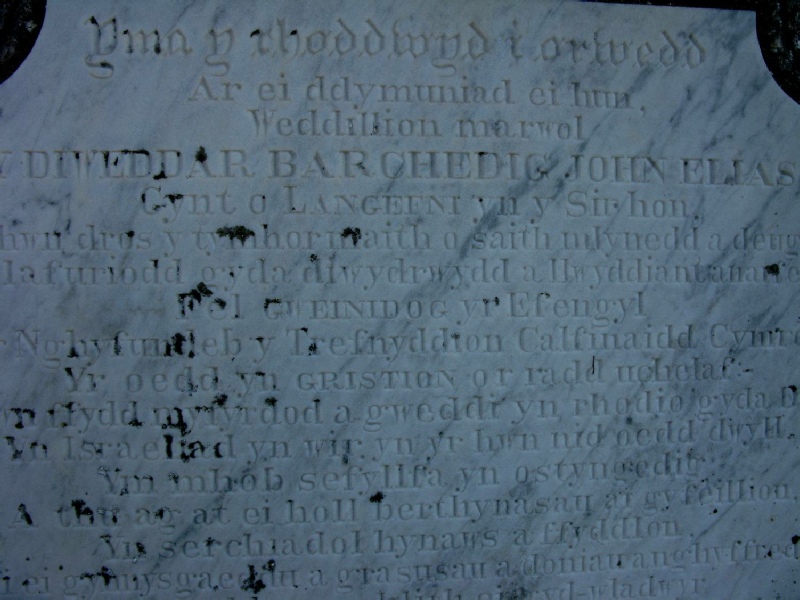 Yma y rhoddwyd i orwedd
Ar ei ddymuniad ei hun,
Weddillion marwol
Y DIWEDDAR BARCHEDIG JOHN ELIAS
Gynt o LANGEFNI yn y Sir hon,
hwn dros y tymhor maith o saith mlynedd a deug
lafuriodd gyda diwydrwydd a llwyddiant
Fel GWEINIDOG yr Efengyl
Nghyfundeb y Trefnyddion Calfinaidd Cymre
Yr oedd yn GRISTION o'r radd uchelaf:-
ffydd myfyrdod a gweddi yn rhodio gyda D
Yn Israeliad yn wir yn yr hwn nid oedd dwyll,
Ym mhob sefyllfa yn ostyngedig
A thu ag at ei holl berthynasau a'i gyfeillion,
Yn serchiadol hynaws a ffyddlon
ei gynnysgaeddu a grasusau a doniau anghyffred